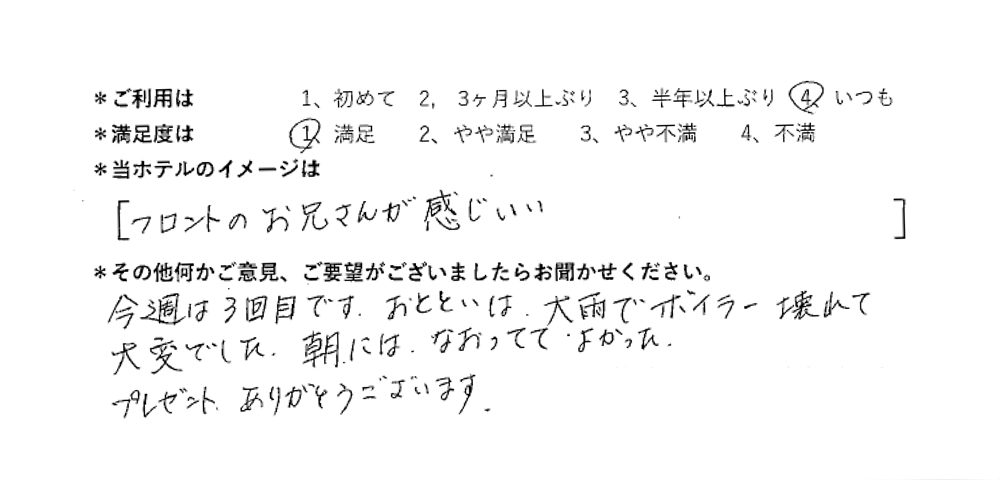 ＊ご利用は 1、初めて 2，3ヶ月以上ぶり 3、半年以上ぶり 4、いつも
＊満足度は 1、満足 2、やや満足 3、やや不満 4、不満
＊当ホテルのイメージは
[フロントのお兄さんが感じいい ]
＊その他何かご意見、ご要望がございましたらお聞かせください。
今週は3回目です．おとといは．大雨でボイラー壊れて
大変でした．朝には．なおってて・よかった．
プレゼント．ありがとうございます．